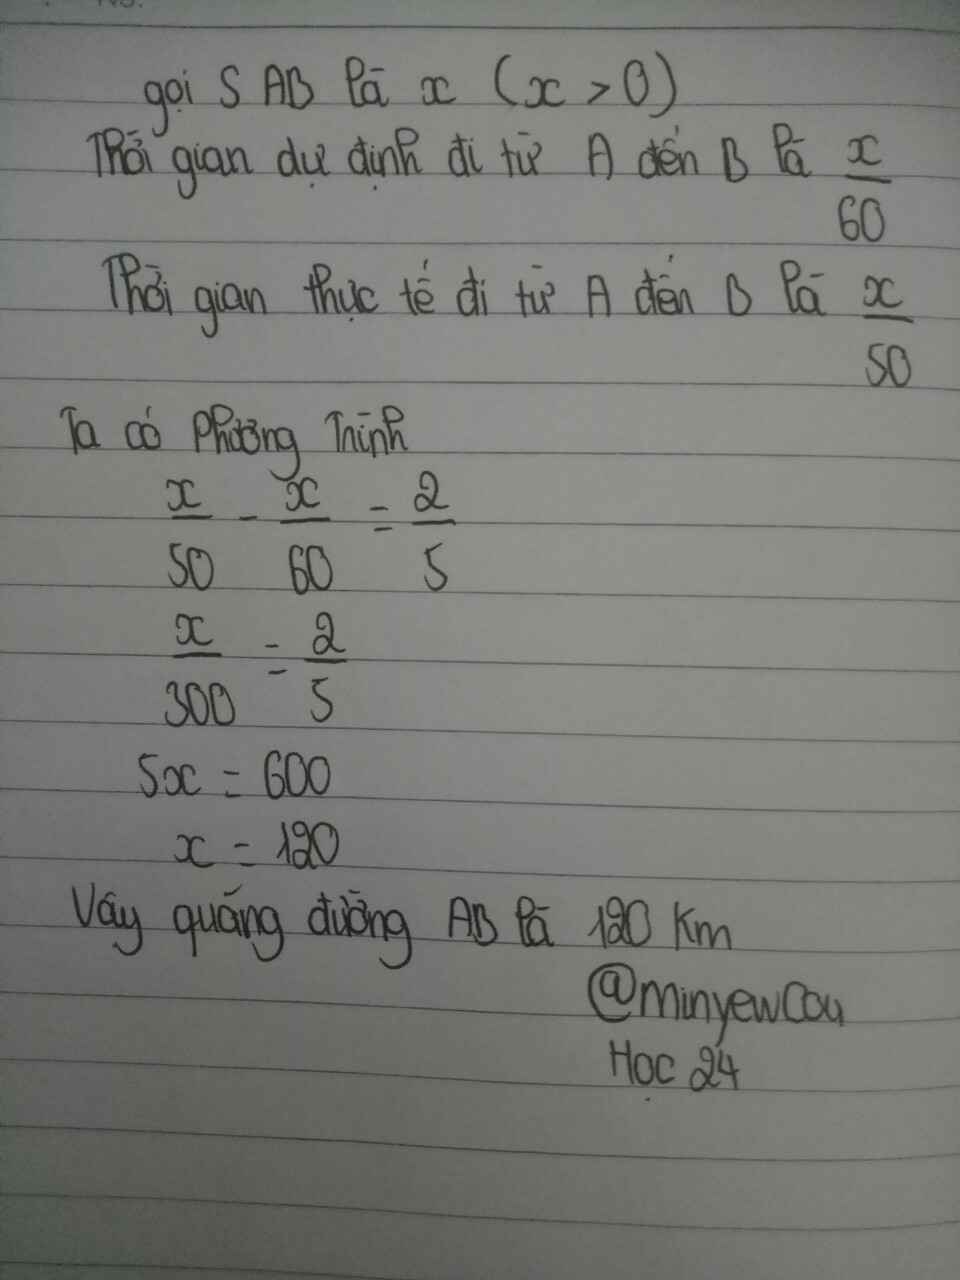 gọi S AB là x (x > 0)
Thời gian dự định đi từ A đến B là x/60
Thời gian thực tế đi từ A đến B là x/50
Ta có Phương Trình
x/50 - x/60 = 2/5
x/300 = 2/5
5x = 600
x = 120
Vậy quãng đường AB là 120 Km
@minyewCou
Học 24